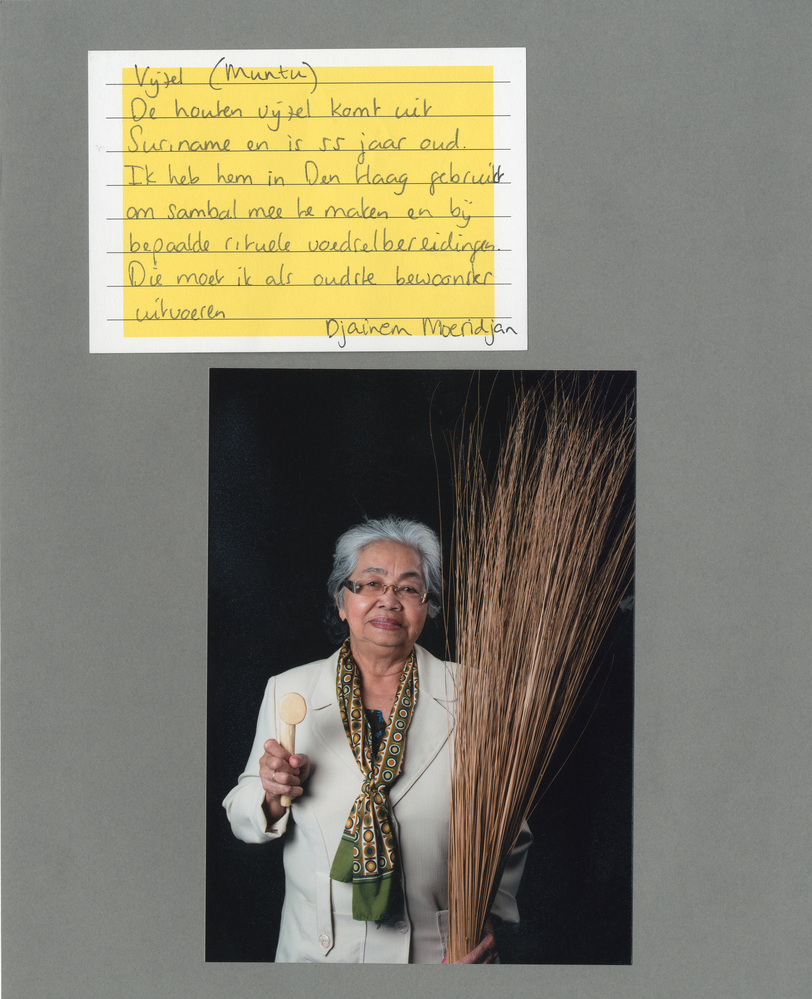 Vijzel (Muntu)
De houten vijzel komt uit
Suriname en is 55 jaar oud.
Ik heb hem in Den Haag gebruikt
om sambal mee te maken en bij
bepaalde rituele voedselbereidingen.
Die moet ik als oudste bewoonster
uitvoeren
Djainem Moeridjan